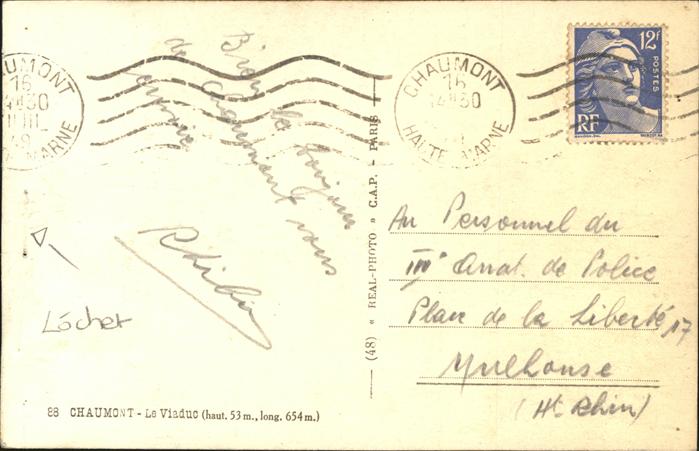 CHAUMONT
15
14H30
HAUTE-MARNE
CHAUMONT
15
14H30
HAUTE-MARNE
12F
POSTES
RF
Bien le bonjour
de Chaumont vous
envoie
Löcher
Au Personnel du
IIIº Arrot. de Police
Place de la Liberté 17
Mulhouse
(Ht Rhin)
(48) « REAL-PHOTO » C.A.P. - PARIS
88 CHAUMONT - Le Viaduc (haut. 53 m., long. 654 m.)